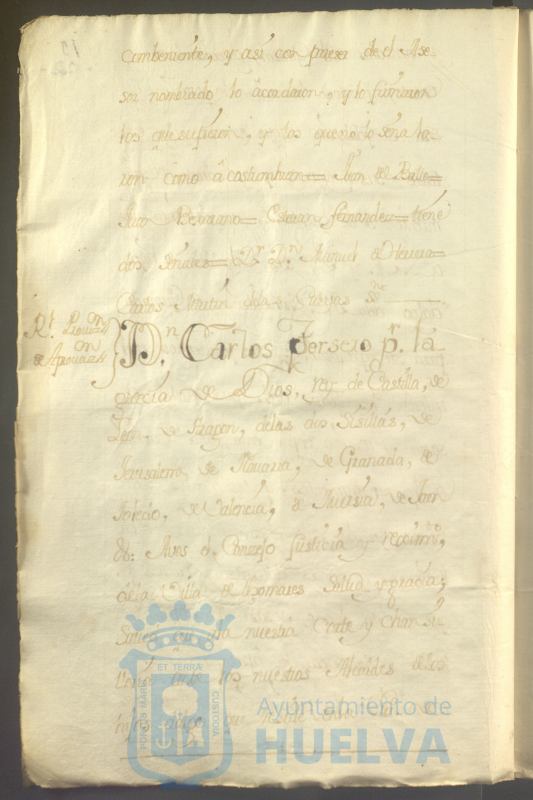 combeniente, y asi con parecer de el Ase-
sor nombrado lo acordaron, y lo firmaron
los que supieron, y los que no lo señala-
ron como acostumbran= Juan de
Juan = Estevan Fernandez= tiene
dos señales= Dr. Dn. Miguel de Herrera=
Carlos de las Cuevas
Rl. Provon.
de Aprovacon
Dn. Carlos Tersero pr. la
gracia de Dios, rey de Castilla, de
Leon, de Aragon, de las dos Sisilias, de
Jerusalem, de Navarra, de Granada, de
Toledo, de Valencia, de Mursia, de Jaen
&: A vos el Consejo Justicia y reximto,
de la Villa de salud y gracia;
en la nuestra Corte y Chansi-
los nuestros Alcaldes de los
hijos dalgo, que
ET TERRÆ
PORTUS MARIS
CUSTODIA
Ayuntamiento de
HUELVA